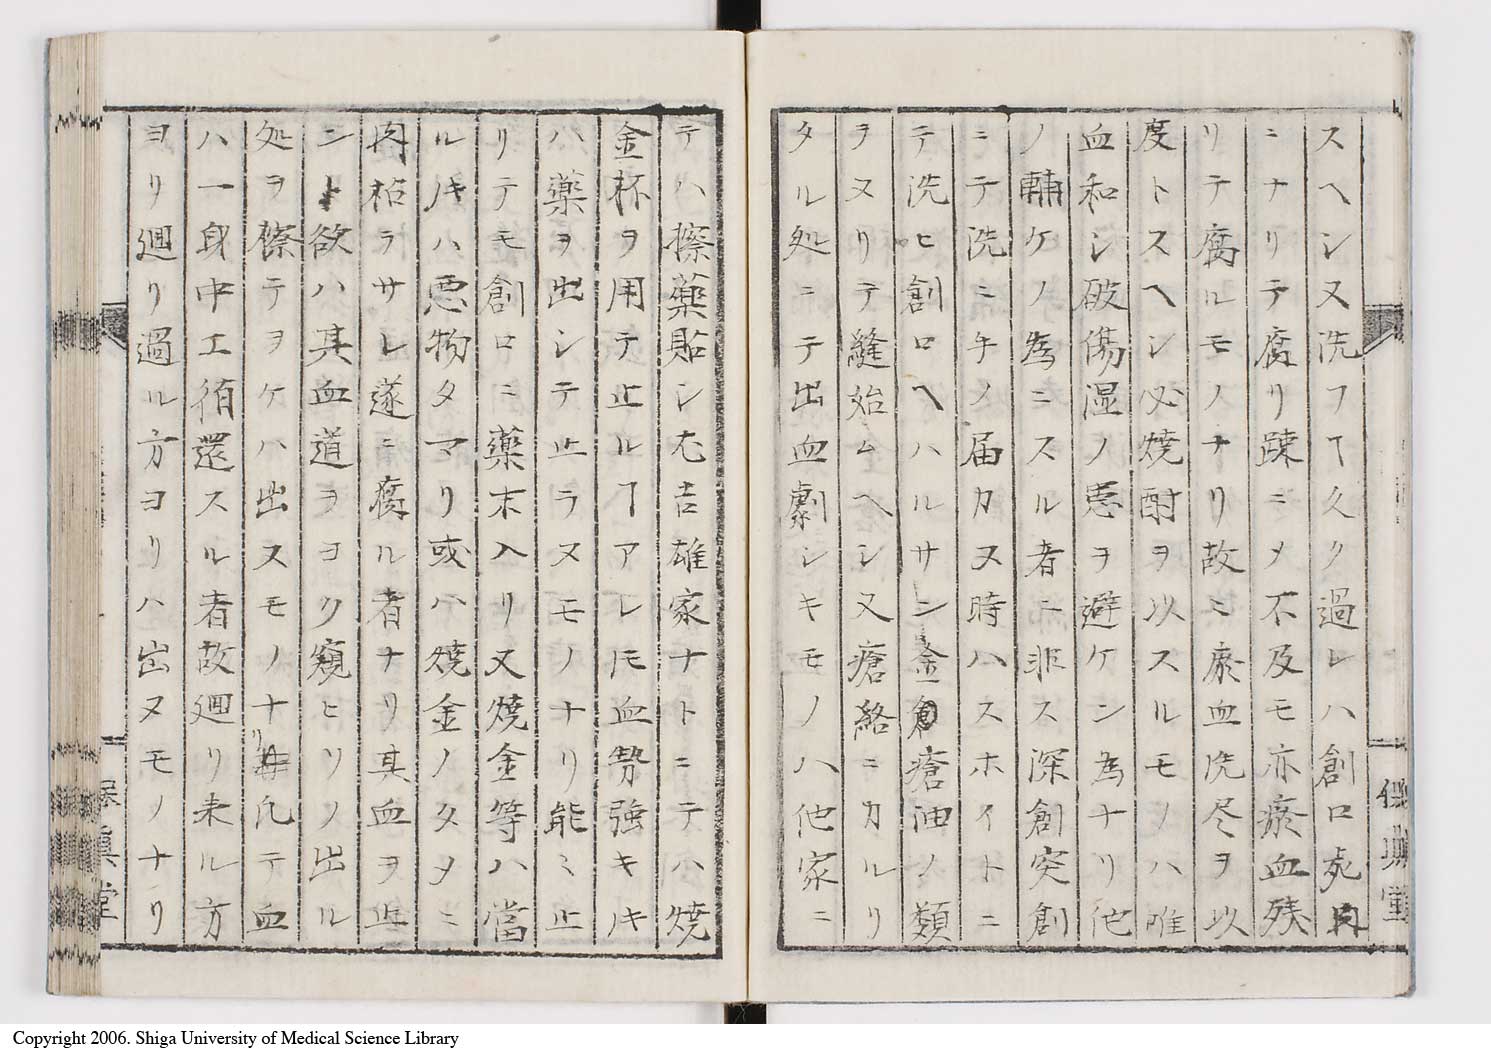 スヘシ又洗フヿ久ク過レハ創口死肉
ニナリテ腐リ踈ニメ不及モ亦瘀血残
リテ腐ルモノナリ故ニ瘀血洗尽ヲ以
度トスヘシ必焼酎ヲ以スルモノハ唯
血和シ破傷湿ノ悪ヲ避ケン為ナリ他
ノ輔ケノ為ニスル者ニ非ス深創突創
ニテ洗ニ手ノ届カヌ時ハスホイトニ
テ洗ヒ創口ヘハルサン金瘡油ノ類
ヲヌリテ縫始ムヘシ又瘡絡ニカルリ
タル処ニテ出血劇シキモノハ他家ニ
テハ擦薬貼シ尤吉雄家ナトニテハ焼
金杯ヲ用テ止ルヿアレ𪜈血勢強キキ
ハ薬ヲ出シテ止ラヌモノナリ能ミ止
リテモ創口ニ薬末入リ又焼金等ハ當
ルキハ悪物タマリ或ハ焼金ノタメニ
肉枯ラサレ遂ニ腐ル者ナリ其血ヲ止
ント欲ハ其血道ヲヨク窺ヒソノ出ル
処ヲ擦テヲケハ出スモノナリ凢テ血
ハ一身中エ循還スル者故廻リ来ル方
ヨリ廻リ過ル方ヨリハ出ヌモノナリ
堂
Copyright 2006. Shiga University of Medical Science Library